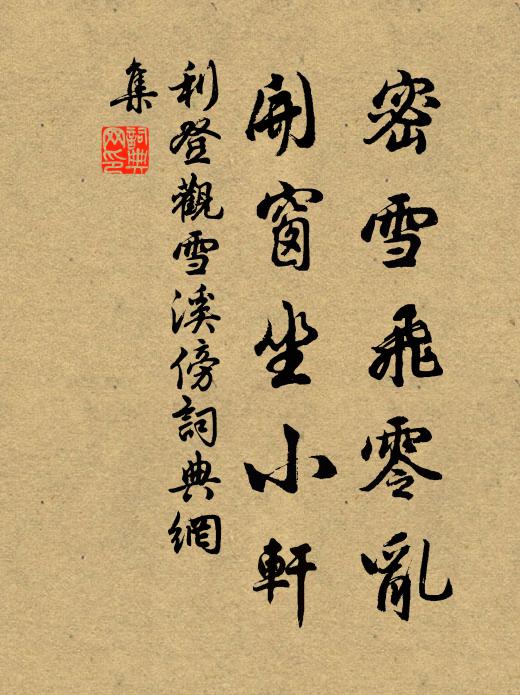 密雪飛零亂
開窗坐小軒
利登觀雪溪傍詞典網
集
詞典
網印